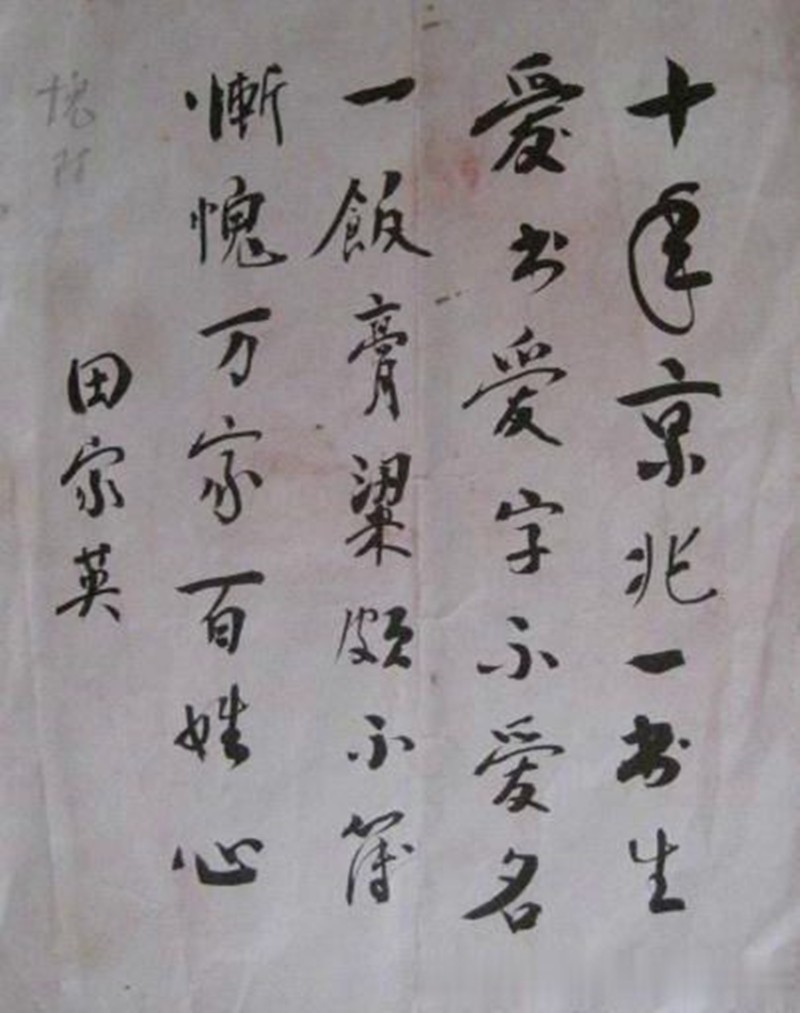 十年京兆一书生
爱书爱字不爱名
一飯膏粱颇不簿
慚愧万家百姓心
田家英
愧